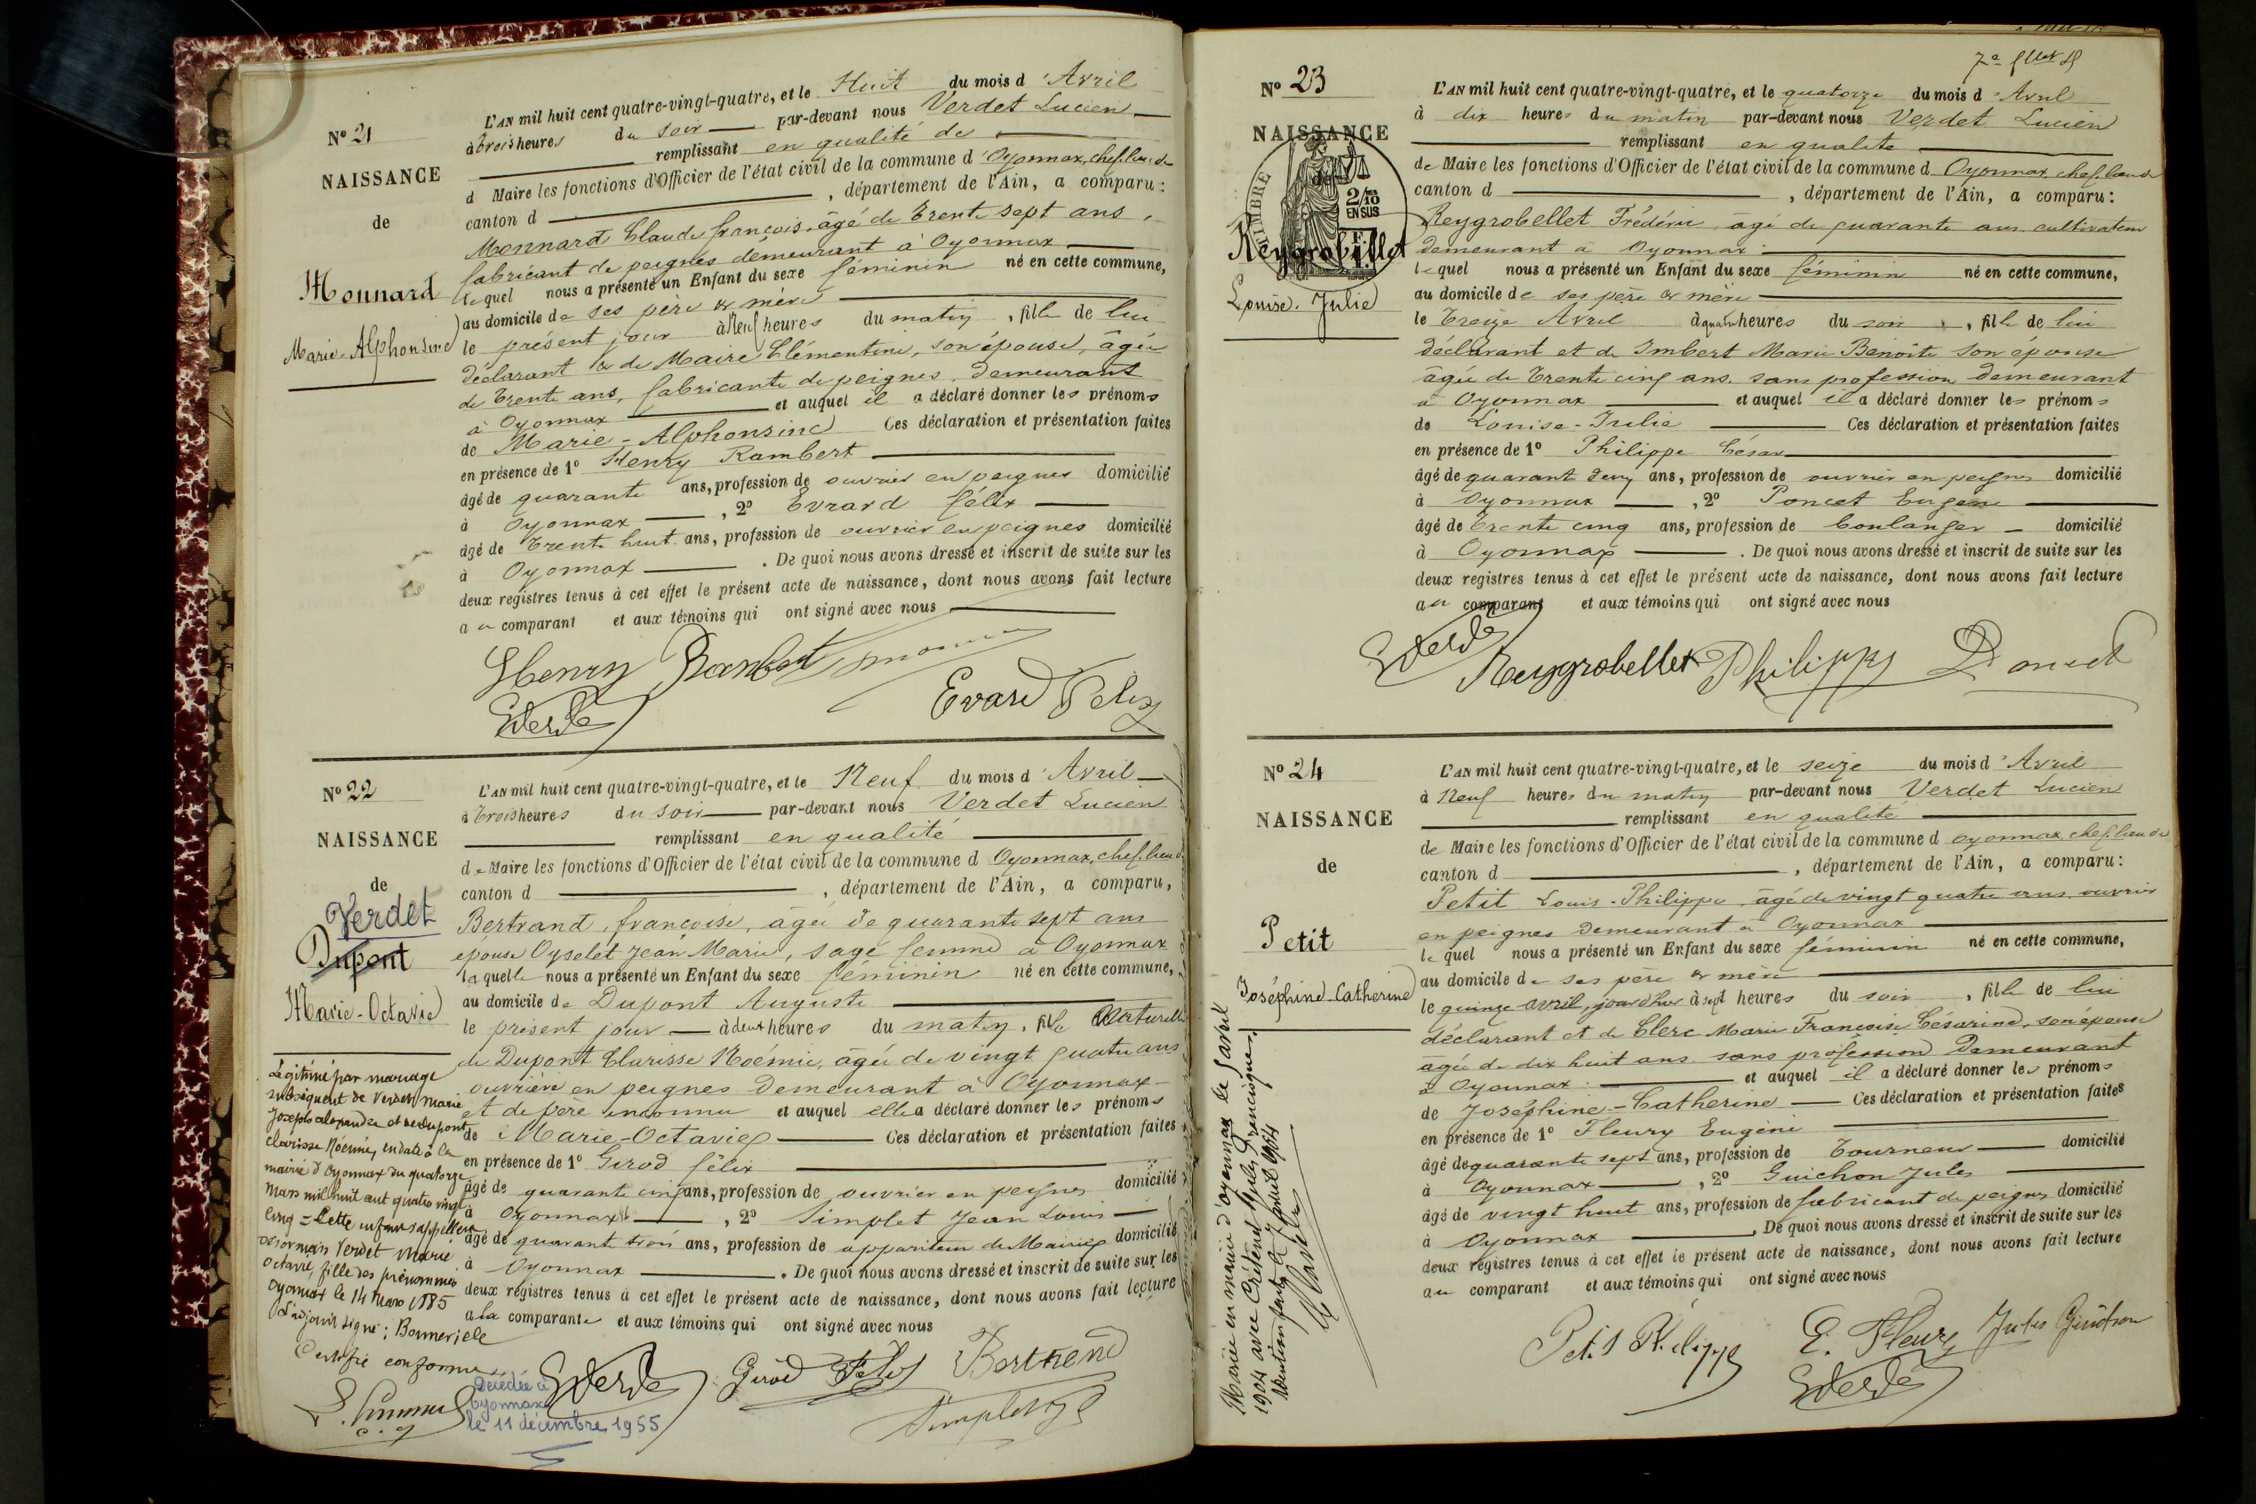 N° 21
NAISSANCE
de
Monnard
Marie-Alphonsine
L'AN mil huit cent quatre-vingt-quatre, et le Huit du mois d'Avril
à trois heures du soir par-devant nous Verdet Lucien
remplissant en qualité de
d Maire les fonctions d'Officier de l'état civil de la commune d'Oyonnax, chef-lieu de
canton d , département de l'Ain, a comparu:
Monnard Claude françois, âgé de trente sept ans,
fabricant de peignes demeurant à Oyonnax
lequel nous a présenté un Enfant du sexe féminin né en cette commune,
au domicile de ses père & mère
le présent jour à Neuf heures du matin, fille de lui
déclarant & de Maire Clémentine, son épouse, âgée
de trente ans, fabricante de peignes, demeurant
à Oyonnax et auquel il a déclaré donner les prénoms
de Marie-Alphonsine Ces déclaration et présentation faites
en présence de 1° Henry Rambert
âgé de quarante ans, profession de ouvrier en peignes domicilié
à Oyonnax , 2° Evrard félix
âgé de trente huit ans, profession de ouvrier en peignes domicilié
à Oyonnax . De quoi nous avons dressé et inscrit de suite sur les
deux registres tenus à cet effet le présent acte de naissance, dont nous avons fait lecture
au comparant et aux témoins qui ont signé avec nous
Henry Rambert
Evard Felix
N° 22
NAISSANCE
de
Verdet
Dupont
Marie-Octavie
L'AN mil huit cent quatre-vingt-quatre, et le Neuf du mois d'Avril
à trois heures du soir par-devant nous Verdet Lucien
remplissant en qualité
de Maire les fonctions d'Officier de l'état civil de la commune d Oyonnax, chef-lieu de
canton d , département de l'Ain, a comparu,
Bertrand, françoise, âgée de quarante sept ans
épouse Oyselet Jean Marie, sage femme à Oyonnax
laquelle nous a présenté un Enfant du sexe féminin né en cette commune,
au domicile de Dupont Auguste
le présent jour à deux heures du matin, fille Naturelle
de Dupont Clarisse Noémie, âgée de vingt quatre ans
ouvrière en peignes demeurant à Oyonnax
et de père inconnu et auquel elle a déclaré donner les prénoms
de Marie-Octavie Ces déclaration et présentation faites
en présence de 1° Girod félix
âgé de quarante cinq ans, profession de ouvrier en peignes domicilié
à Oyonnax , 2° Simplet Jean Louis
âgé de quarante trois ans, profession de appariteur de Mairie domicilié
à Oyonnax . De quoi nous avons dressé et inscrit de suite sur les
deux registres tenus à cet effet le présent acte de naissance, dont nous avons fait lecture
à la comparante et aux témoins qui ont signé avec nous
Légitimé par mariage
subséquent de Verdet Marie
Joseph alexandre et de Dupont
clarisse Noémie, en date à la
mairie d'Oyonnax du quatorze
Mars mil huit cent quatre vingt
cinq = Cette enfant s'appellera
désormais Verdet Marie
Octavie, fille des prénommés
Oyonnax le 14 Mars 1885
L'adjoint signé:
Certifié conforme
Décédée à
Oyonnax
le 11 décembre 1955
Girod Félix
Bertrand
Simplet
N° 23
NAISSANCE
de
TIMBRE
2/10
EN SUS
Reygrobellet
Louise-Julie
L'AN mil huit cent quatre-vingt-quatre, et le quatorze du mois d'Avril
à dix heures du matin par-devant nous Verdet Lucien
remplissant en qualité
de Maire les fonctions d'Officier de l'état civil de la commune d Oyonnax, chef-lieu de
canton d , département de l'Ain, a comparu:
Reygrobellet Frédéric, âgé de quarante ans cultivateur
demeurant à Oyonnax
lequel nous a présenté un Enfant du sexe féminin né en cette commune,
au domicile de ses père & mère
le Treize Avril à quatre heures du soir, fille de lui
déclarant et de Imbert Marie Benoîte son épouse
âgée de trente cinq ans. sans profession demeurant
à Oyonnax et auquel il a déclaré donner les prénoms
de Louise-Julie Ces déclaration et présentation faites
en présence de 1° Philippe César
âgé de quarante deux ans, profession de ouvrier en peignes domicilié
à Oyonnax , 2° Poncet Eugène
âgé de trente cinq ans, profession de boulanger domicilié
à Oyonnax . De quoi nous avons dressé et inscrit de suite sur les
deux registres tenus à cet effet le présent acte de naissance, dont nous avons fait lecture
au comparant et aux témoins qui ont signé avec nous
Reygrobellet Philippe Poncet
N° 24
NAISSANCE
de
Petit
Joséphine-Catherine
L'AN mil huit cent quatre-vingt-quatre, et le seize du mois d'Avril
à Neuf heures du matin par-devant nous Verdet Lucien
remplissant en qualité
de Maire les fonctions d'Officier de l'état civil de la commune d Oyonnax, chef-lieu de
canton d , département de l'Ain, a comparu:
Petit Louis-Philippe, âgé de vingt quatre ans ouvrier
en peignes demeurant à Oyonnax
lequel nous a présenté un Enfant du sexe féminin né en cette commune,
au domicile de ses père & mère
le quinze avril, à sept heures du soir, fille de lui
déclarant et de Clerc Marie Françoise Césarine, son épouse
âgée de dix huit ans sans profession demeurant
à Oyonnax et auquel il a déclaré donner les prénoms
de Joséphine-Catherine Ces déclaration et présentation faites
en présence de 1° Fleury Eugène
âgé de quarante sept ans, profession de Tourneur domicilié
à Oyonnax , 2° Guichon Jules
âgé de vingt huit ans, profession de fabricant de peignes domicilié
à Oyonnax . De quoi nous avons dressé et inscrit de suite sur les
deux registres tenus à cet effet le présent acte de naissance, dont nous avons fait lecture
au comparant et aux témoins qui ont signé avec nous
Mariée en mairie d'oyonnax le avril
1904 avec Crétenet Jules Francisque
Mention faite le avril 1904
Petit Philippe
E. Fleury Jules Guichon